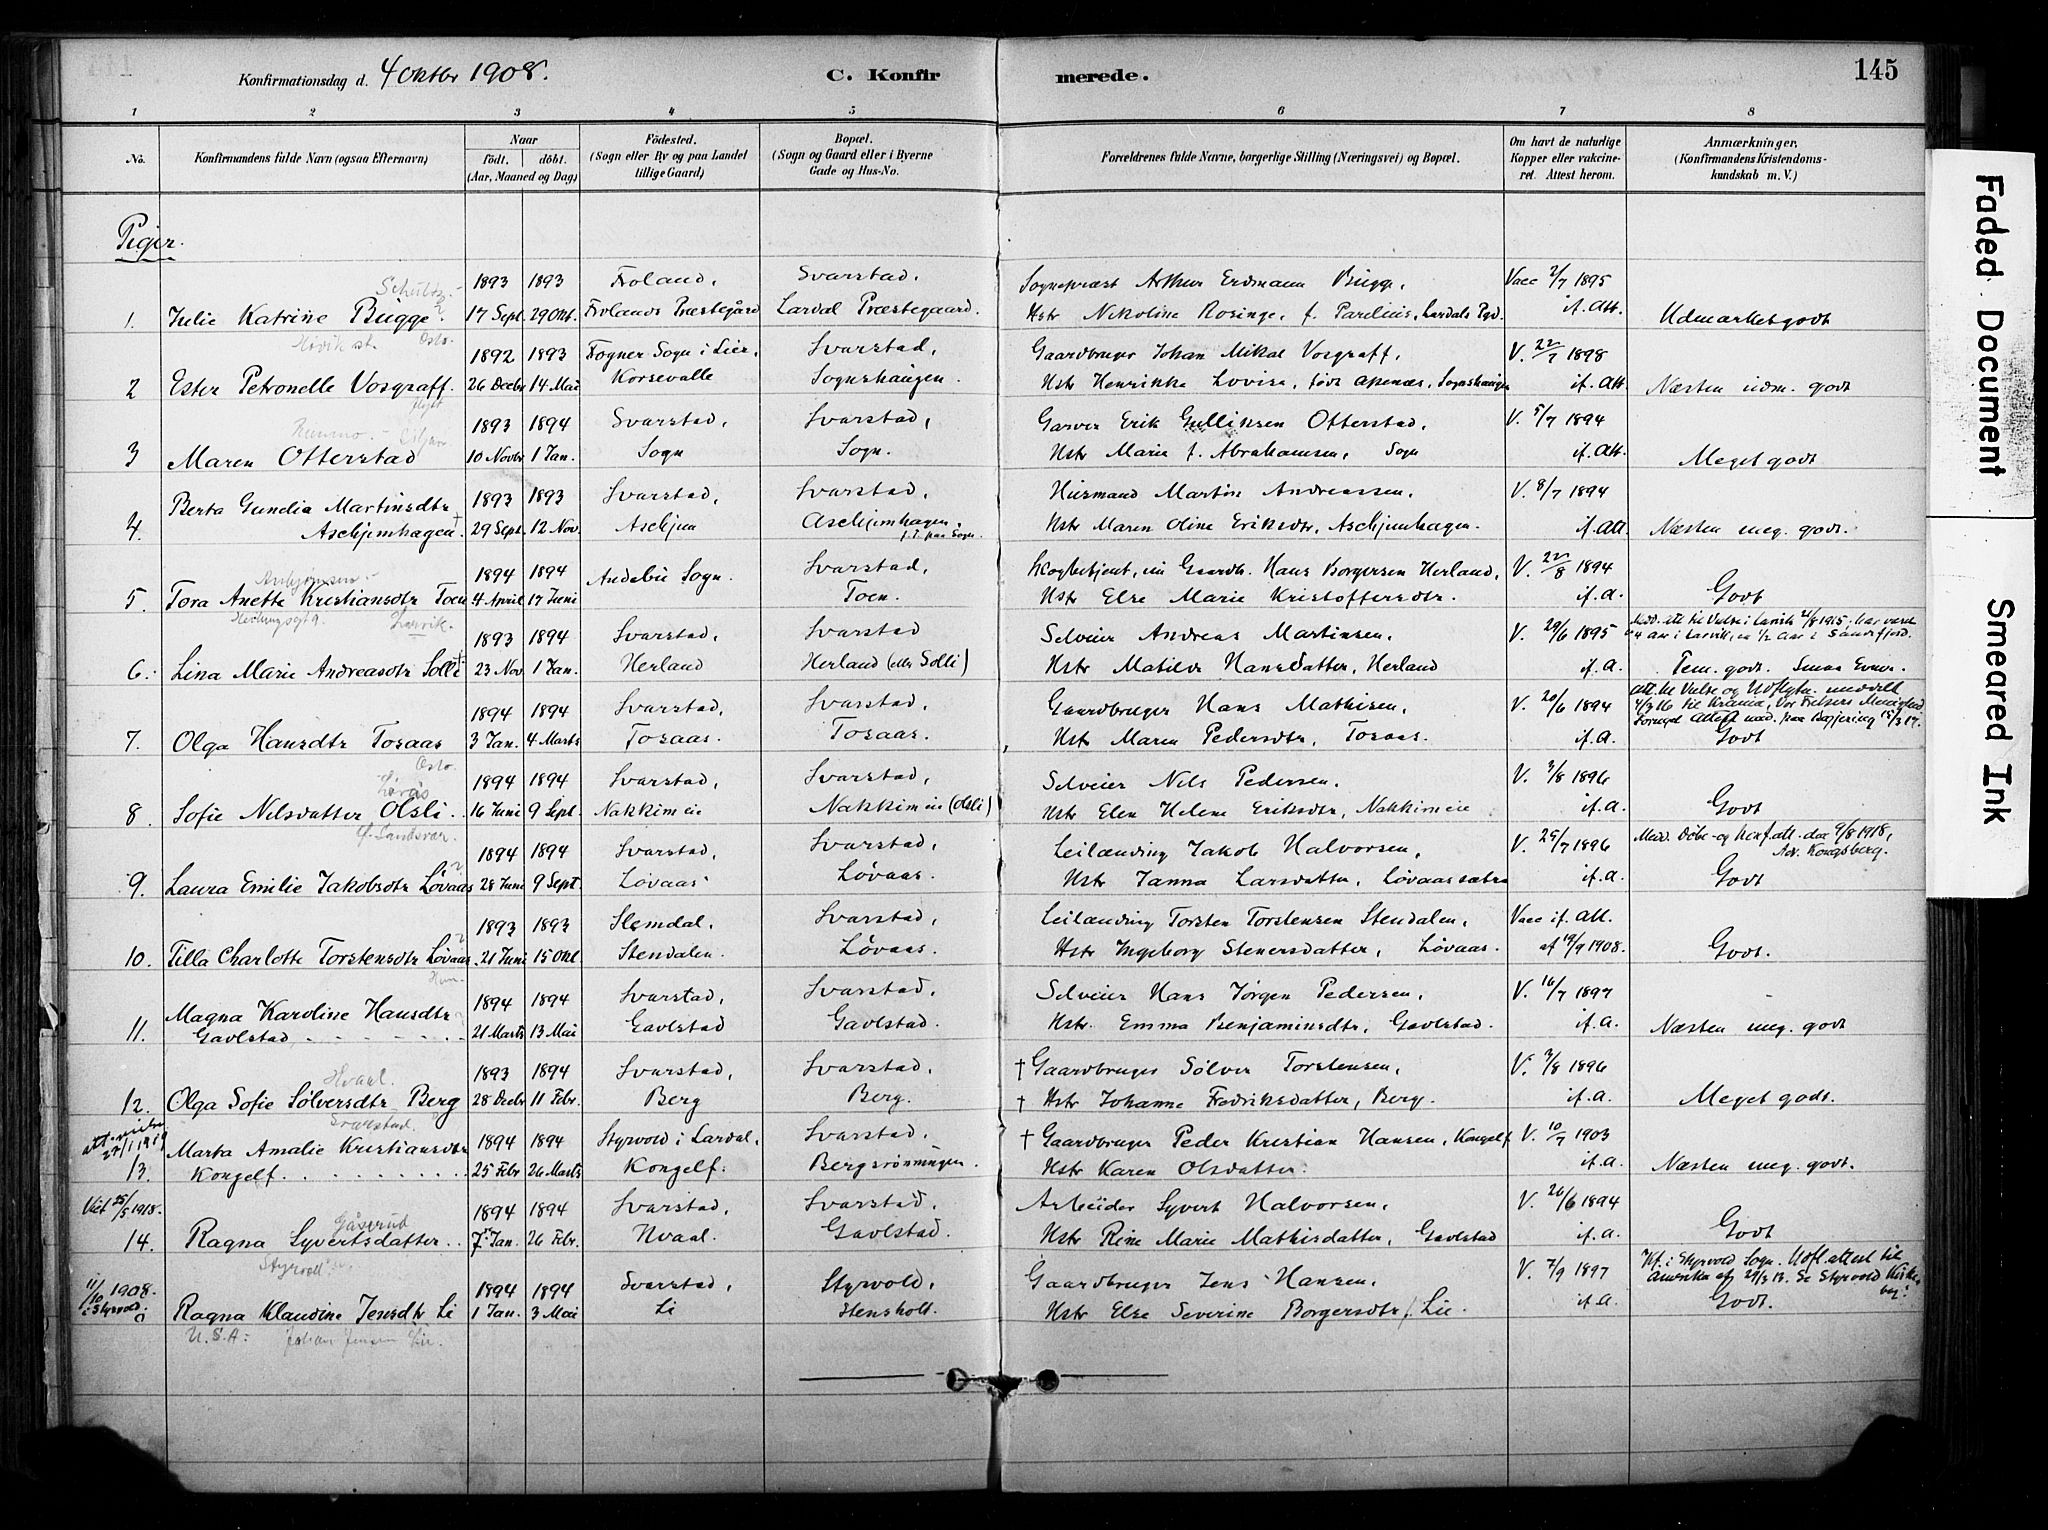 Konfirmationsdag d. 4 Oktbr 1908.
C. Konfirmerede.
145
1 2 3 4 5 6 7 8
No.
Konfirmandens fulde Navn (ogsaa Efternavn)
Naar
födt. döbt.
(Aar, Maaned og Dag)
Födested.
(Sogn eller By og paa Landet
tillige Gaard)
Bopæl.
(Sogn og Gaard eller i Byerne
Gade og Hus-No.
Forældrenes fulde Navne, borgerlige Stilling (Næringsvei) og Bopæl.
Om havt de naturlige
Kopper eller vakcine-
ret. Attest herom.
Anmærkninger,
(Konfirmandens Kristendoms-
kundskab m. V.)
Piger.
Schultz
1893 1893 Froland, Svarstad, Sognepræst Arthur Erdmann Bugge, Vacc 2/7 1895
1. Julie Katrine Bugge. 17 Sept. 29 Okt. Frolands Præstegård Lardal Præstegaard. Hstr Nikoline Rosinge, f. Parelius, Lardals Pgd. if. Att. Udmærket godt
Oslo.
1892 1893 Fogner Sogn i Lier, Svarstad, Gaardbruger Johan Mikal Vosgraff, V. 22/7 1898
2 Ester Petronelle Vosgraff. 26 Decbr 14 Mai Korsevalle Sognshaugen. Hstr Henrikke Lovise, født Apenæs, Sognshaugen if. Att. Næsten udm. godt
1893 1894 Svarstad, Svarstad, Garver Erik Gulliksen Otterstad, V. 5/7 1894
3 Maren Otterstad 10 Novbr 1 Jan. Sogn Sogn. Hstr Marie f. Abrahamsen, Sogn if. Att. Meget godt
Berta Gunelia Martinsdtr 1893 1893 Svarstad, Svarstad, Husmand Martin Andreassen, V. 8/7 1894
4. Askjemhagen. 29 Sept. 12 Nov. Askjem Askjemhagen, Hstr Maren Oline Eriksdtr, Askjemhagen. if. att. Næsten meg. godt.
f.t. paa Sogn.
1894 1894 Andebu Sogn. Svarstad, Skogbetjent, nu Gaardb. Hans Borgersen Herland, V. 22/8 1894
5. Tora Anette Kristiansdtr Toen 4 April 17 Juni Toen. Hstr Else Marie Kristoffersdtr. if. a. Godt
Larvik.
1893 1894 Svarstad, Svarstad Selveier Andreas Martinsen, V. 29/6 1895 Medd. att til Vielse i Larvik 21/8 1915, har været
4 Aar i Larvik, ca 1/2 Aar i Sandefjord.
6. Lina Marie Andreasdtr Solli 23 Nov. 1 Jan. Herland Herland (eller Solli) Hstr Matilde Hansdatter, Herland if. a. Tem. godt. Smaa Evner.
1894 1894 Svarstad, Svarstad, Gaardbruger Hans Mathisen, V. 20/6 1894 Att. til Vielse og Udflytn. meddelt
4/3 16 til Krania, Vor Frelsers Menighed
Fornyet Attest med. paa Begjæring 15/3 17.
7. Olga Hansdtr Tosaas 3 Jan. 4 Marts Tosaas. Tosaas. Hstr Maren Pedersdtr, Tosaas. if. a. Godt
Oslo.
1894 1894 Svarstad, Svarstad, Selveier Nils Pedersen. V. 3/8 1896
8. Sofie Nilsdatter Olsli. 16 Juni 9 Sept. Nakkim eie Nakkim eie (Olsli) Hstr Elen Helene Eriksdtr, Nakkim eie if. a. Godt
Ø. Sandsvær.
1894 1894 Svarstad, Svarstad, Leilænding Jakob Halvorsen, V. 25/7 1896 Medd. Døbe- og Konf. att. den 9/8 1918,
Adr. Kongsberg.
9. Laura Emilie Jakobsdtr Løvaas 28 Juni 9 Sept. Løvaas Løvaas. Hstr Janna Larsdatter, Løvaassætra if. a. Godt
1893 1893 Slemdal, Svarstad, Leilænding Torsten Torstensen Stendalen, Vacc if. att.
10. Tilla Charlotte Torstensdtr Løvaas. 21 Juni 15 Okt. Stendalen Løvaas. Hstr Ingeborg Stenersdatter, Løvaas. af 19/9 1908. Godt.
Magna Karoline Hansdtr 1894 1894 Svarstad, Svarstad, Selveier Hans Jørgen Pedersen, V. 16/7 1897
11. Gavlstad 21 Marts 13 Mai Gavlstad Gavlstad. Hstr. Emma Benjaminsdtr, Gavlstad. if. a. Næsten meg. godt
Hvaal.
1893 1894 Svarstad, Svarstad, † Gaardbruger Sølver Torstensen, V. 3/8 1896
12. Olga Sofie Sølversdtr Berg 28 Decbr 11 Febr. Berg Berg. † Hstr Johanne Fredriksdatter, Berg. if. a. Meget godt.
Svarstad.
att. vielse
27/1 1919 Marta Amalie Kristiansdtr 1894 1894 Styrvold i Lardal, Svarstad, † Gaardbruger Peder Kristian Hansen, Kongelf V. 10/7 1903
13. Kongelf. 25 Febr 26 Marts Kongelf. Bergsrønningen. Hstr Karen Olsdatter. if. a. Næsten meg. godt.
Viet 25/5 1918. 1894 1894 Svarstad, Svarstad. Arbeider Syvert Halvorsen, V. 26/6 1894
Gåserud
14. Ragna Syvertsdatter 7. Jan. 26 Febr. Hvaal. Gavlstad. Hstr Rine Marie Mathisdatter, Gavlstad if. a. Godt
Styrvoll
11/10 1908. 1894 1894 Svarstad, Styrvold, Gaardbruger Jens Hansen, V. 7/9 1897 Kf. i Styrvold Sogn. Udfl. attest til
Amerika af 29/3 13. Se Styrvold Kirke
bog.
i Styrvold Ragna Klaudine Jensdtr Li 1 Jan. 3 Mai Li Stensholt. Hstr Else Severine Borgersdtr, Lie. if a. Godt.
U.S.A: Johan Jensen Lie.
Faded Document
Smeared Ink